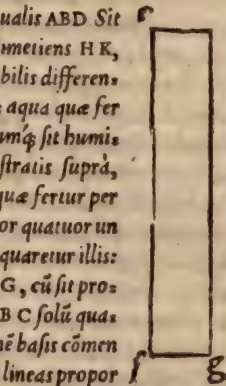 ualis ABD Sit
r
metiens H K,
bilis differen:
aqua quæ fer
umq́; ſit humi:
ſtratis ſuprà,
quæ fertur per
or quatuor un
quaretur illis:
G, cũ ſit pro:
B C ſolũ qua:
nẽ baſis cõmen
lineas propor
ſ g